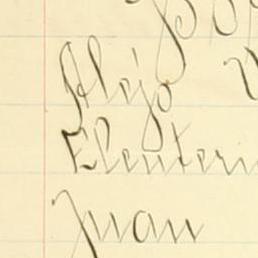 Alejo
Eleuteri
Juan